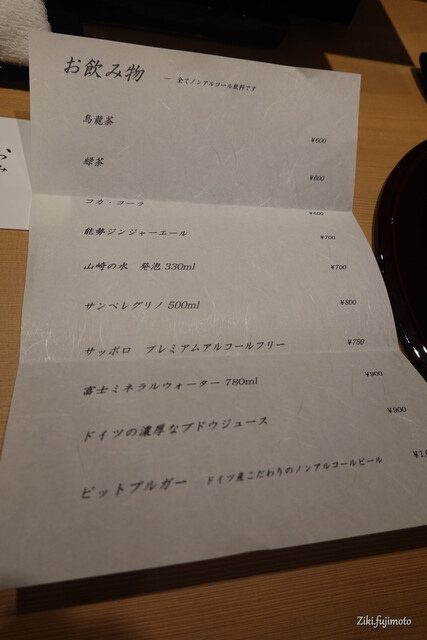 お飲み物 － 全てノンアルコール飲料です
烏龍茶 ¥600
緑茶 ¥600
コカ・コーラ ¥600
能勢ジンジャーエール ¥700
山崎の水 発泡 330ml ¥700
サンペレグリノ 500ml ¥800
サッポロ プレミアムアルコールフリー ¥750
富士ミネラルウォーター 780ml ¥900
ドイツの濃厚なブドウジュース ¥900
ビットブルガー ドイツ産こだわりのノンアルコールビール
Ziki.fujimoto